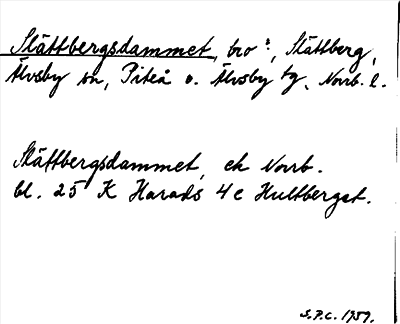 Stättbergsdammet, bro ?, Stättberg,
Älvsby sn, Piteå o. Älvsby tg, Norrb. l.
Stättbergsdammet, ek Norrb.
bl. 25 K Harads 4 c Hultberget.
S.P.C. 1959.